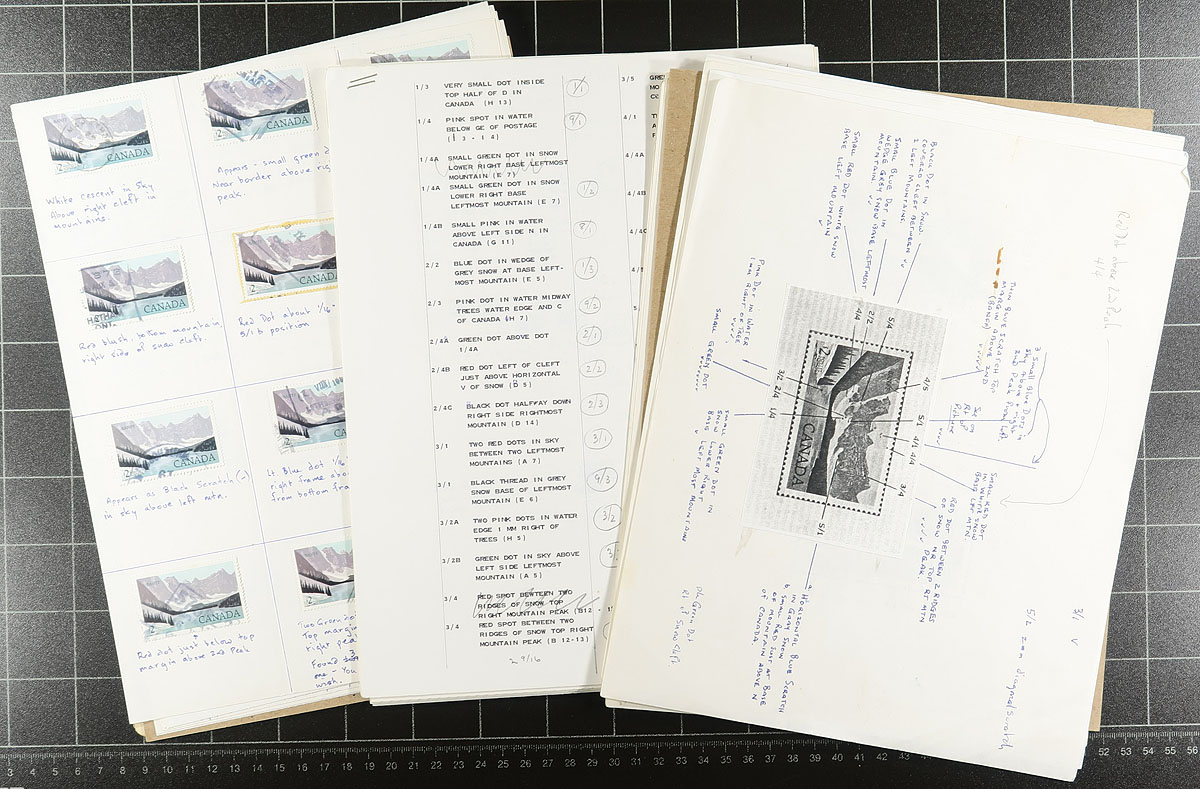 CANADA
White crescent in Sky
Above right cleft in
mountains.
CANADA
Appears - small green d
Near border above rig
peak.
CANADA
Red blush, bottom mountain
right side of snow cleft.
CANADA
Red Dot about 1/16"
5/1 b position
CANADA
Appears as Black Scratch (-)
in sky above left mtn.
CANADA
Lt Blue dot 1/16
right frame abo
from bottom fra
CANADA
Red Dot just below top
margin above 2nd Peak
Two Green do
Top margin
right pea
Found
me. You
wish.
1/3 VERY SMALL DOT INSIDE
TOP HALF OF D IN
CANADA (H 13)
1/1
1/4 PINK SPOT IN WATER
BELOW GE OF POSTAGE
(I 3 - I 4)
9/1
1/4A SMALL GREEN DOT IN SNOW
LOWER RIGHT BASE LEFTMOST
MOUNTAIN (E 7)
1/4A SMALL GREEN DOT IN SNOW
LOWER RIGHT BASE
LEFTMOST MOUNTAIN (E 7)
1/2
1/4B SMALL PINK IN WATER
ABOVE LEFT SIDE N IN
CANADA (G 11)
8/1
2/2 BLUE DOT IN WEDGE OF
GREY SNOW AT BASE LEFT-
MOST MOUNTAIN (E 5)
1/3
2/3 PINK DOT IN WATER MIDWAY
TREES WATER EDGE AND C
OF CANADA (H 7)
9/2
2/4A GREEN DOT ABOVE DOT
1/4A
2/1
2/4B RED DOT LEFT OF CLEFT
JUST ABOVE HORIZONTAL
V OF SNOW (B 5)
2/2
2/4C BLACK DOT HALFWAY DOWN
RIGHT SIDE RIGHTMOST
MOUNTAIN (D 14)
2/3
3/1 TWO RED DOTS IN SKY
BETWEEN TWO LEFTMOST
MOUNTAINS (A 7)
3/1
3/1 BLACK THREAD IN GREY
SNOW BASE OF LEFTMOST
MOUNTAIN (E 6)
9/3
3/2A TWO PINK DOTS IN WATER
EDGE 1 MM RIGHT OF
TREES (H 5)
3/2
3/2B GREEN DOT IN SKY ABOVE
LEFT SIDE LEFTMOST
MOUNTAIN (A 5)
3/4 RED SPOT BEWTEEN TWO
RIDGES OF SNOW TOP
RIGHT MOUNTAIN PEAK (B 12
3/4 RED SPOT BETWEEN TWO
RIDGES OF SNOW TOP RIGHT
MOUNTAIN PEAK (B 12-13)
9/16
3/5
4/1
4/4A
4/4B
BLACK DOT IN SNOW
TOWARD CLEFT BETWEEN
2 LEFT MOUNTAINS
SMALL BLUE DOT IN
WEDGE GREY SNOW BASE LEFT MOST
MOUNTAIN
SMALL RED DOT WHITE SNOW
BASE LEFT MOUNTAIN
PINK DOT IN WATER
1 MM RIGHT OF TREE
SMALL GREEN DOT
SMALL GREEN DOT IN
SNOW LOWER RIGHT
BASE LEFT MOST MOUNTAIN
THIN BLUE SCRATCH TOP
MARGIN ABOVE 2ND
a Small Blue Dots in
Sky above right
2nd Peak from left
SMALL RED DOT
IN WHITE SNOW
BASE LEFT MTN
RED DOT BETWEEN 2 RIDGES
OF SNOW NR TOP RT MTN
PEAK.
a HORIZONTAL BLUE SCRATCH
IN GRAY SNOW
b SMALL RED JUST AT BASE
OF MOUNTAIN ABOVE N
OF CANADA.
4/4
2/2
5/4
3/2
2/4
1/4
4/5
5/1
4/1
4/4
3/4
5/1
CANADA
4/4
Rt of Snow Cleft.
3/1 v
5/2
diagonal scratch
3 4 5 6 7 8 9 10 11 12 13 14 15 16 17 18 19 20 21 22 23 24 25 26 27 28 29 30 31 32 33 34 35 36 37 38 39 40 41 42 43
52 53 54 55 56